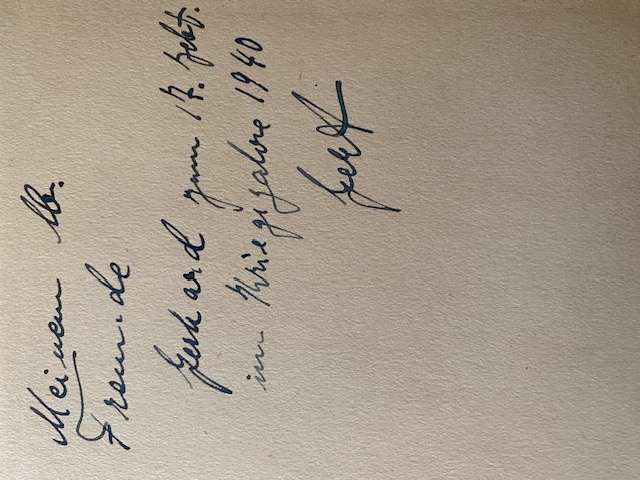 Meinem lb.
Freunde
Gerhard zum 17. Gebt.
im Kriegsjahre 1940
Gert